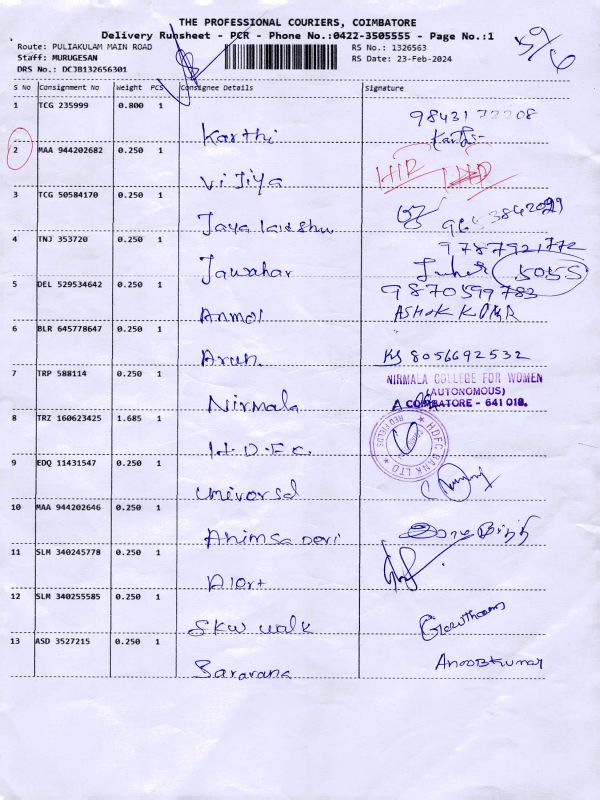 THE PROFESSIONAL COURIERS, COIMBATORE
Delivery Runsheet - PCR - Phone No.:0422-3505555 - Page No.:1
Route: PULIAKULAM MAIN ROAD RS No.: 1326563
Staff: MURUGESAN RS Date: 23-Feb-2024
DRS No.: DCJB132656301
S No Consignment No Weight PCS Consignee Details Signature
1 TCG 235999 0.800 1 Karthi
2 MAA 944202682 0.250 1 Vi Jiya
3 TCG 50584170 0.250 1
9787921772
4 TNJ 353720 0.250 1 Jawahar 5055
9870599783
5 DEL 529534642 0.250 1 Anmol ASHOK KUMR
6 BLR 645778647 0.250 1 Arun 8056692532
7 TRP 588114 0.250 1 Nirmala
NIRMALA COLLEGE FOR WOMEN
(AUTONOMOUS)
COIMBATORE - 641 018.
8 TRZ 160623425 1.685 1 H.D.F.C.
HDFC BANK LTD
RED FIELDS
9 EDQ 11431547 0.250 1 Universal
10 MAA 944202646 0.250 1 Ahimsa Devi
11 SLM 340245778 0.250 1 Alert
12 SLM 340255585 0.250 1 SKW Walk Gowtham
13 ASD 3527215 0.250 1 Saravana AnooBkumar